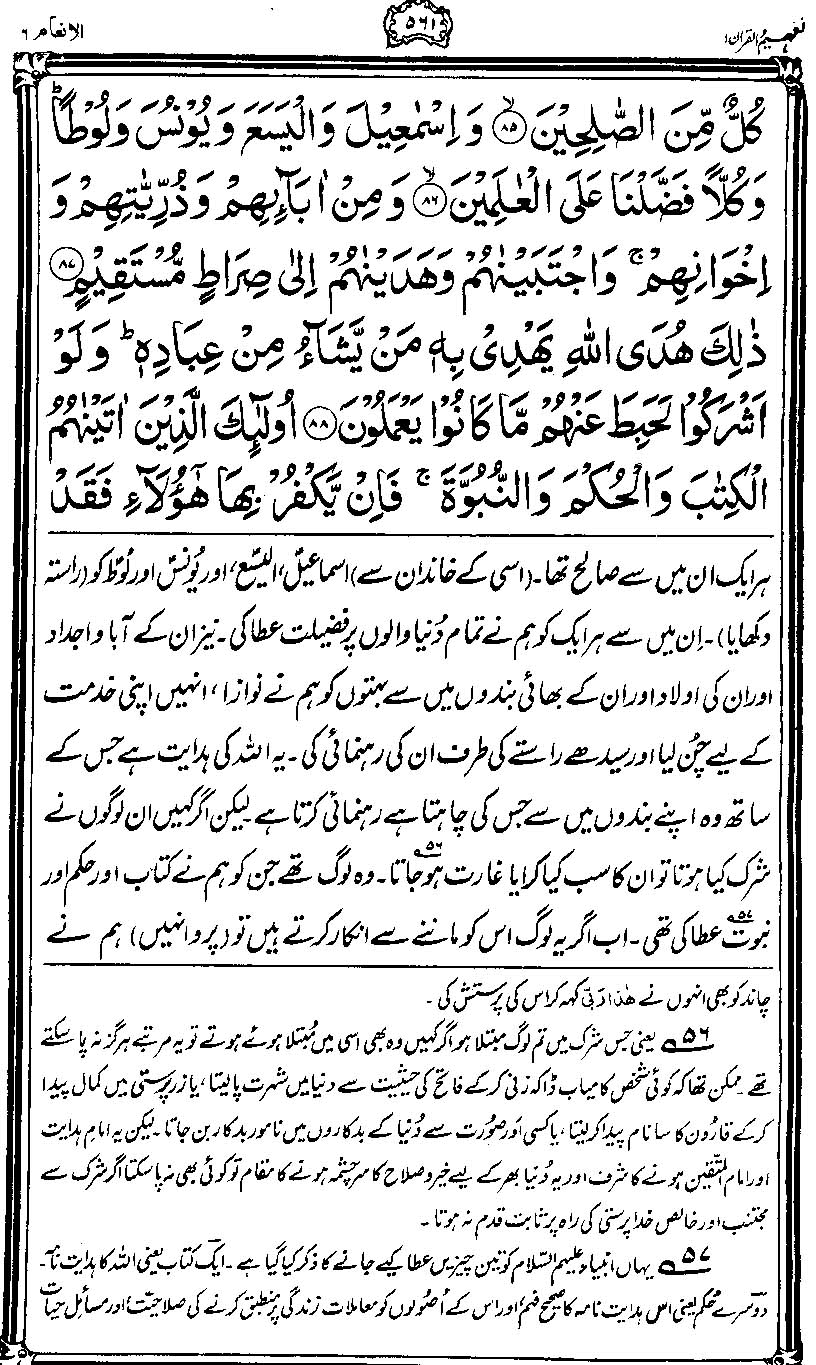 تفہیم القرآن ۱
۵۶۱
الانعام ۶
كُلٌّ مِّنَ الصّٰلِحِيْنَ ﴿۸۵﴾ وَاِسْمٰعِيْلَ وَالْيَسَعَ وَيُوْنُسَ وَلُوْطًا ؕ
وَكُلًّا فَضَّلْنَا عَلَى الْعٰلَمِيْنَ ﴿۸۶﴾ وَمِنْ اٰبَآئِهِمْ وَذُرِّيّٰتِهِمْ وَ
اِخْوَانِهِمْ ۚ وَاجْتَبَيْنٰهُمْ وَهَدَيْنٰهُمْ اِلٰى صِرَاطٍ مُّسْتَقِيْمٍ ﴿۸۷﴾
ذٰلِكَ هُدَى اللّٰهِ يَهْدِىْ بِهٖ مَنْ يَّشَآءُ مِنْ عِبَادِهٖ ؕ وَلَوْ
اَشْرَكُوْا لَحَبِطَ عَنْهُمْ مَّا كَانُوْا يَعْمَلُوْنَ ﴿۸۸﴾ اُولٰٓئِكَ الَّذِيْنَ اٰتَيْنٰهُمُ
الْكِتٰبَ وَالْحُكْمَ وَالنُّبُوَّةَ ۚ فَاِنْ يَّكْفُرْ بِهَا هٰٓؤُلَآءِ فَقَدْ
ہر ایک ان میں سے صالح تھا۔ (اسی کے خاندان سے) اسماعیلؑ، الیسعؑ، اور یونسؑ اور لوطؑ کو (راستہ
دکھایا)۔ اِن میں سے ہر ایک کو ہم نے تمام دُنیا والوں پر فضیلت عطا کی۔ نیز ان کے آبا و اجداد
اور ان کی اولاد اور ان کے بھائی بندوں میں سے بہتوں کو ہم نے نوازا، انہیں اپنی خدمت
کے لیے چُن لیا اور سیدھے راستے کی طرف ان کی رہنمائی کی۔ یہ اللہ کی ہدایت ہے جس کے
ساتھ وہ اپنے بندوں میں سے جس کی چاہتا ہے رہنمائی کرتا ہے۔ لیکن اگر کہیں ان لوگوں نے
شرک کیا ہوتا تو ان کا سب کیا کرایا غارت ہو جاتا۵۶۔ وہ لوگ تھے جن کو ہم نے کتاب اور حکم اور
نبوت عطا کی تھی۵۷۔ اب اگر یہ لوگ اس کو ماننے سے انکار کرتے ہیں تو (پروا نہیں) ہم نے
چاند کو بھی انہوں نے ھٰذا ربّی کہہ کر اس کی پرستش کی۔
۵۶ یعنی جس شرک میں تم لوگ مبتلا ہو اگر کہیں وہ بھی اسی میں مُبتلا ہوئے ہوتے تو یہ مرتبے ہرگز نہ پا سکتے
تھے۔ ممکن تھا کہ کوئی شخص کامیاب ڈاکہ زنی کر کے فاتح کی حیثیت سے دنیا میں شہرت پا لیتا، یا زر پرستی میں کمال پیدا
کر کے قارُون کا سا نام پیدا کر لیتا، یا کسی اَور صُورت سے دُنیا کے بدکاروں میں نامور بدکار بن جاتا۔ لیکن یہ امامِ ہدایت
اور امام المتّقین ہونے کا شرف اور یہ دُنیا بھر کے لیے خیر و صلاح کا سرچشمہ ہونے کا مقام تو کوئی بھی نہ پا سکتا اگر شرک سے
مجتنب اور خالص خدا پرستی کی راہ پر ثابت قدم نہ ہوتا۔
۵۷ یہاں انبیاء علیہم السّلام کو تین چیزیں عطا کیے جانے کا ذکر کیا گیا ہے۔ ایک کتاب یعنی اللہ کا ہدایت نامہ۔
دوسرے حُکم یعنی اس ہدایت نامہ کا صحیح فہم اور اس کے اُصُولوں کو معاملات زندگی پر منطبق کرنے کی صلاحیت اور مسائلِ حیات